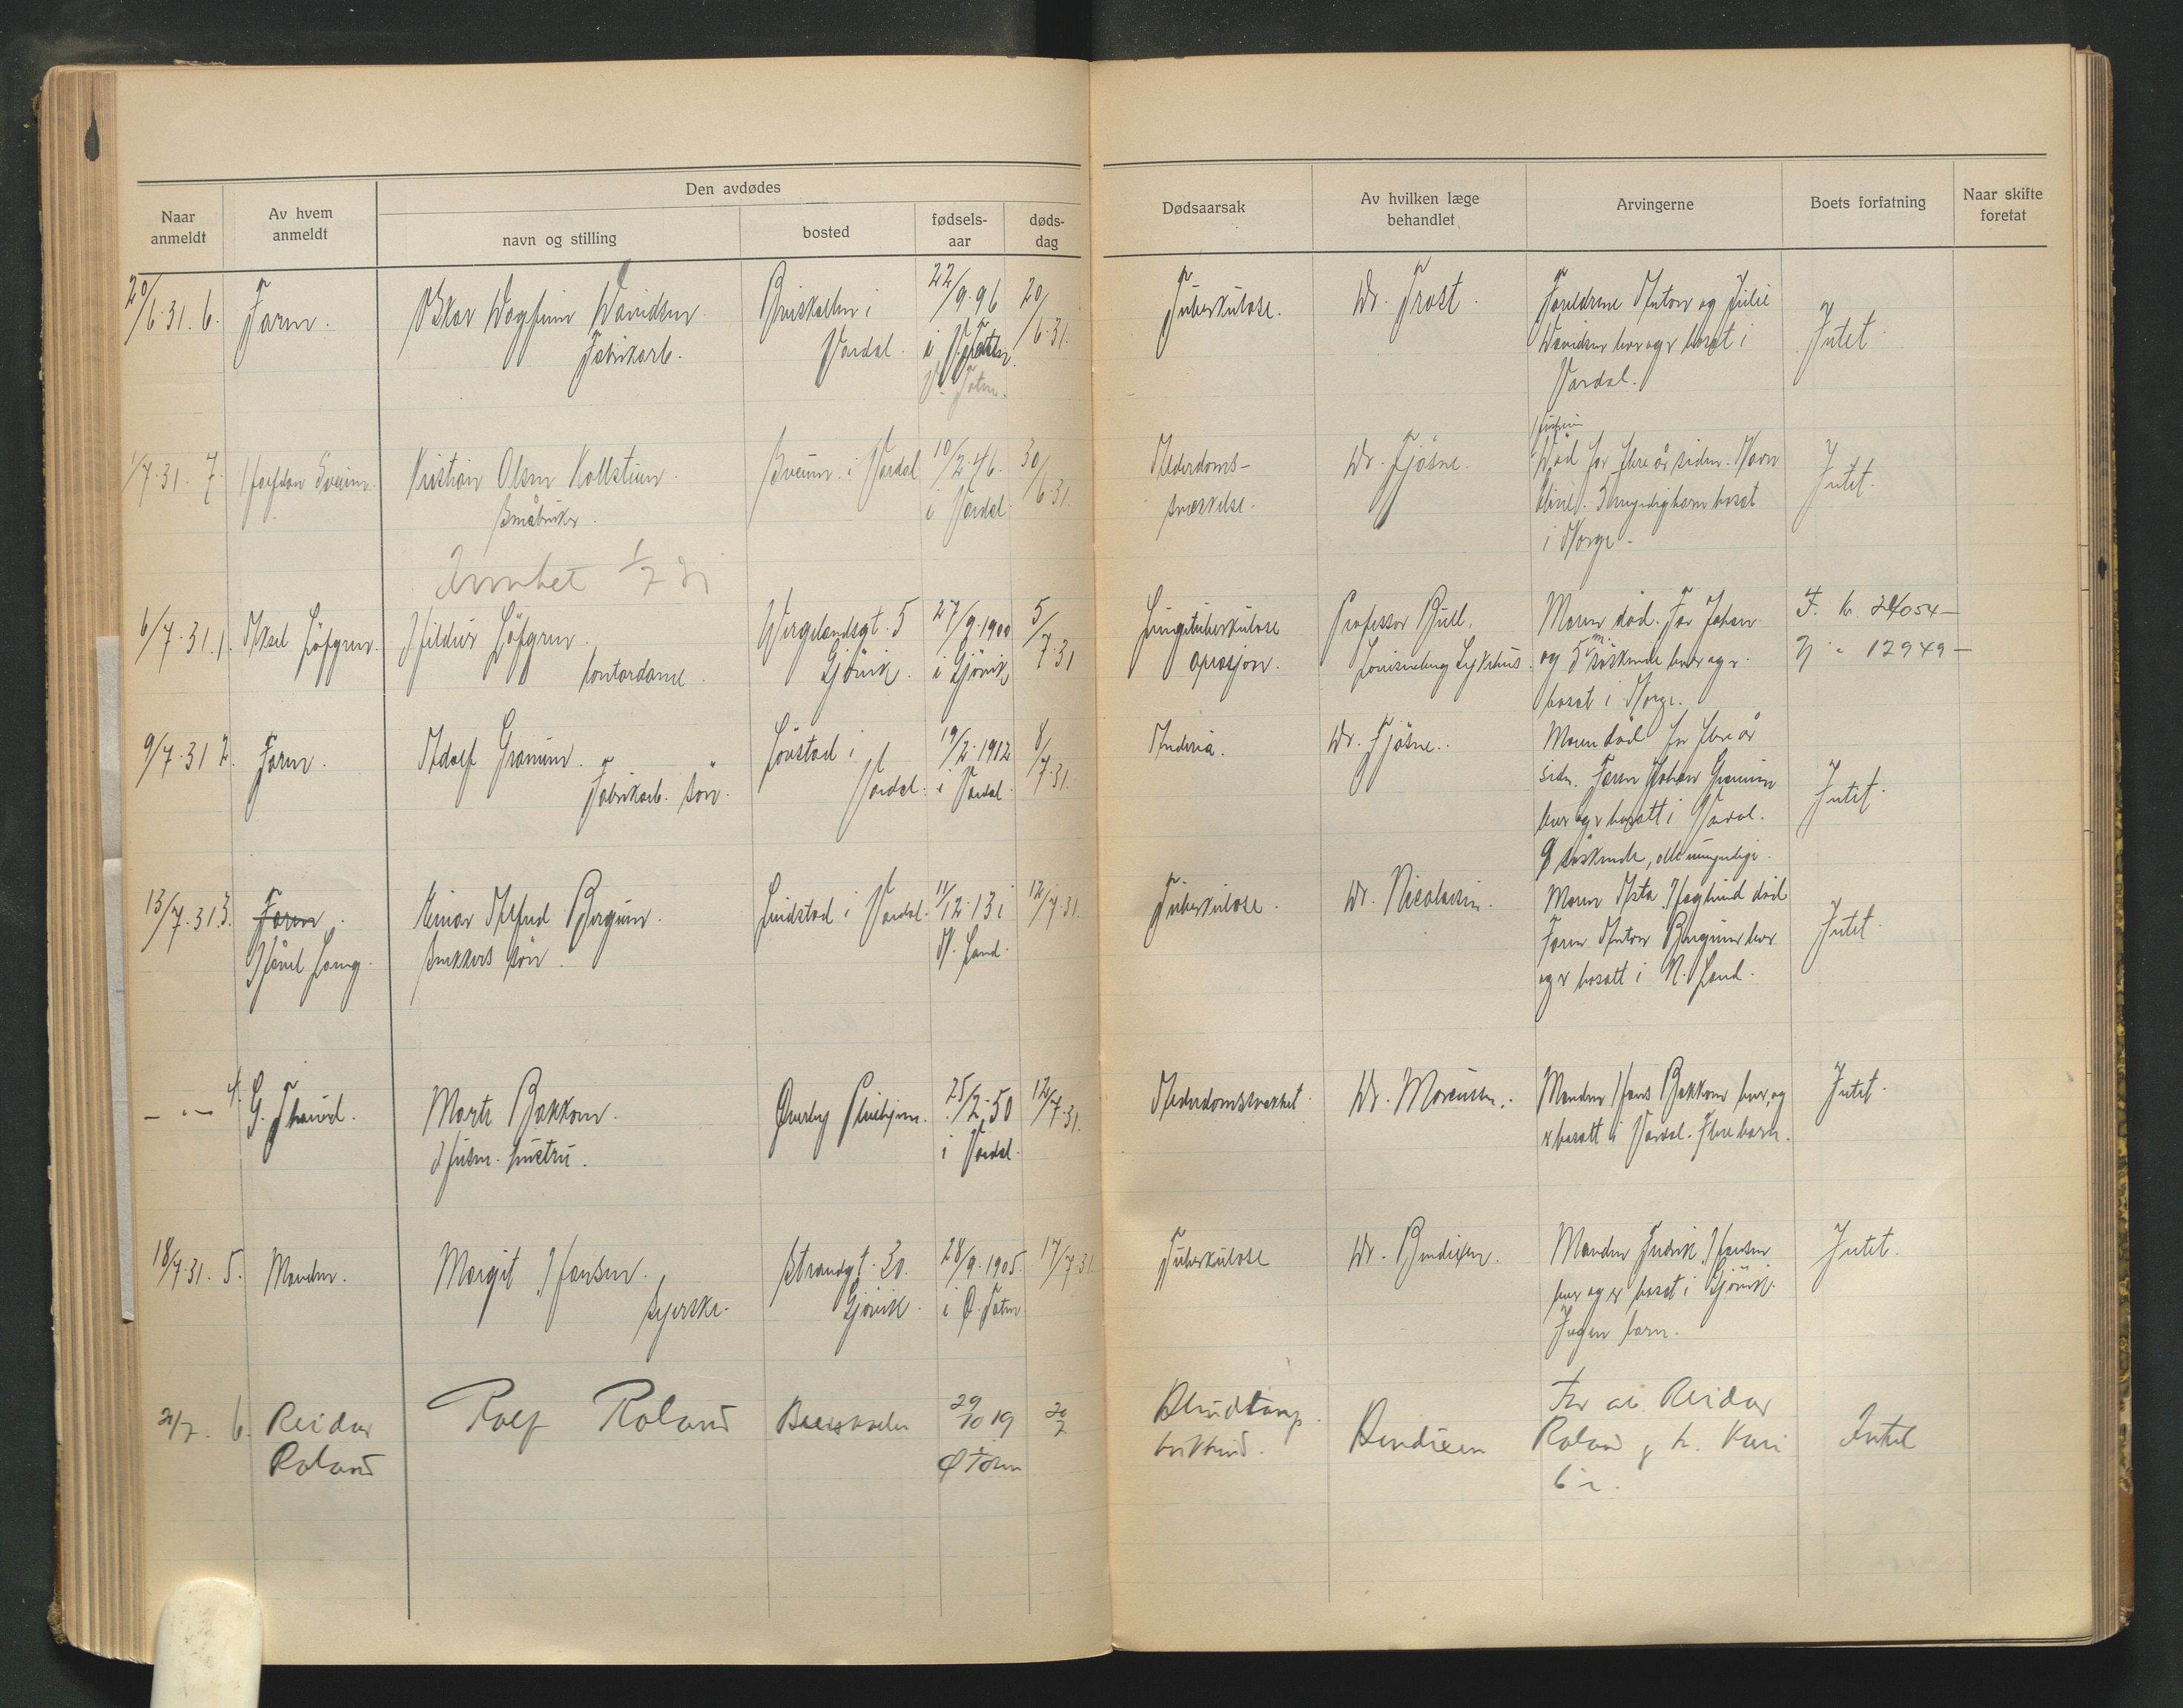 Den avdødes
Naar anmeldt
Av hvem anmeldt
navn og stilling
bosted
fødsels-aar
døds-dag
Dødsaarsak
Av hvilken læge behandlet
Arvingerne
Boets forfatning
Naar skifte foretat
20/6.31. 6. Faren.
Dagfinn Davidsen
Fabrikarb.
i
Vardal.
22/9.96
20/6.31.
Tuberkulose.
Dr. Frost.
Foreldrene Anton og Julie
Davidsen lever og er bosat i
Vardal.
Intet.
1/7.31. 7.
Kristian Olsen
Småbruker.
Sveum i Vardal
10/2.46.
i Vardal.
30/6.31.
Alderdoms-
svækkelse.
Dr. Fjösne.
Hustruen
Död for flere år siden. Navn
5 myndige barn bosat
i Norge.
Intet.
1/7 31
6/7.31. 1. Aksel Löfgren.
Hildur Löfgren.
kontordame.
Wergelandsgt. 5
Gjövik.
27/9.1900
i Gjövik
5/7.31
Lungetuberkulose
operasjon.
Professor Bull.
Lovisenberg Sykehus.
Moren död. Far Johan
og 5 m. söskende lever og er
bosat i Norge.
F. kr. 24054 –
N " 12949 –
9/7.31 2. Faren.
Adolf Granum.
Fabrikarb. sön.
i
Vardal.
19/2.1912
i Vardal.
8/7.31.
Dr. Fjösne.
Moren död for flere år
siden. Faren Johan Granum
lever og er bosatt i Vardal.
söskende, alle umyndige.
Intet.
13/7.31 3. Faren.
Einar Alfred Bergum.
Snekkers sön.
i Vardal.
11/12.13 i
N. Land.
12/7.31.
Tuberkulose.
Dr. Nicolaisen.
Moren Asta Haglund död
Faren Anton Bergum lever
og er bosatt i N. Land.
Intet.
– " – 4. G.
Marte Bakkom.
Husm. hustru.
Överby Pleiehjem.
25/2.50
i Vardal.
12/7.31.
Alderdomssvækket.
Dr. Marcussen.
Manden Hans Bakkom lever, og
er bosatt i Vardal. Flere barn.
Intet.
18/7.31. 5. Manden.
Margit Hansen.
Syerske.
Strandgt. 20.
Gjövik.
28/9.1905.
i Ö. Toten.
17/7.31.
Tuberkulose
Dr. Bendixen.
Manden Fredrik Hansen
lever og er bosat i Gjövik.
Ingen barn.
Intet.
21/7. 6. Reidar
Roland
Rolf Roland
29/10 19
Ø Toten
20/7
Blindtarm
Bendixen
Far ar. Reidar
Roland g. h. Kari
Intet